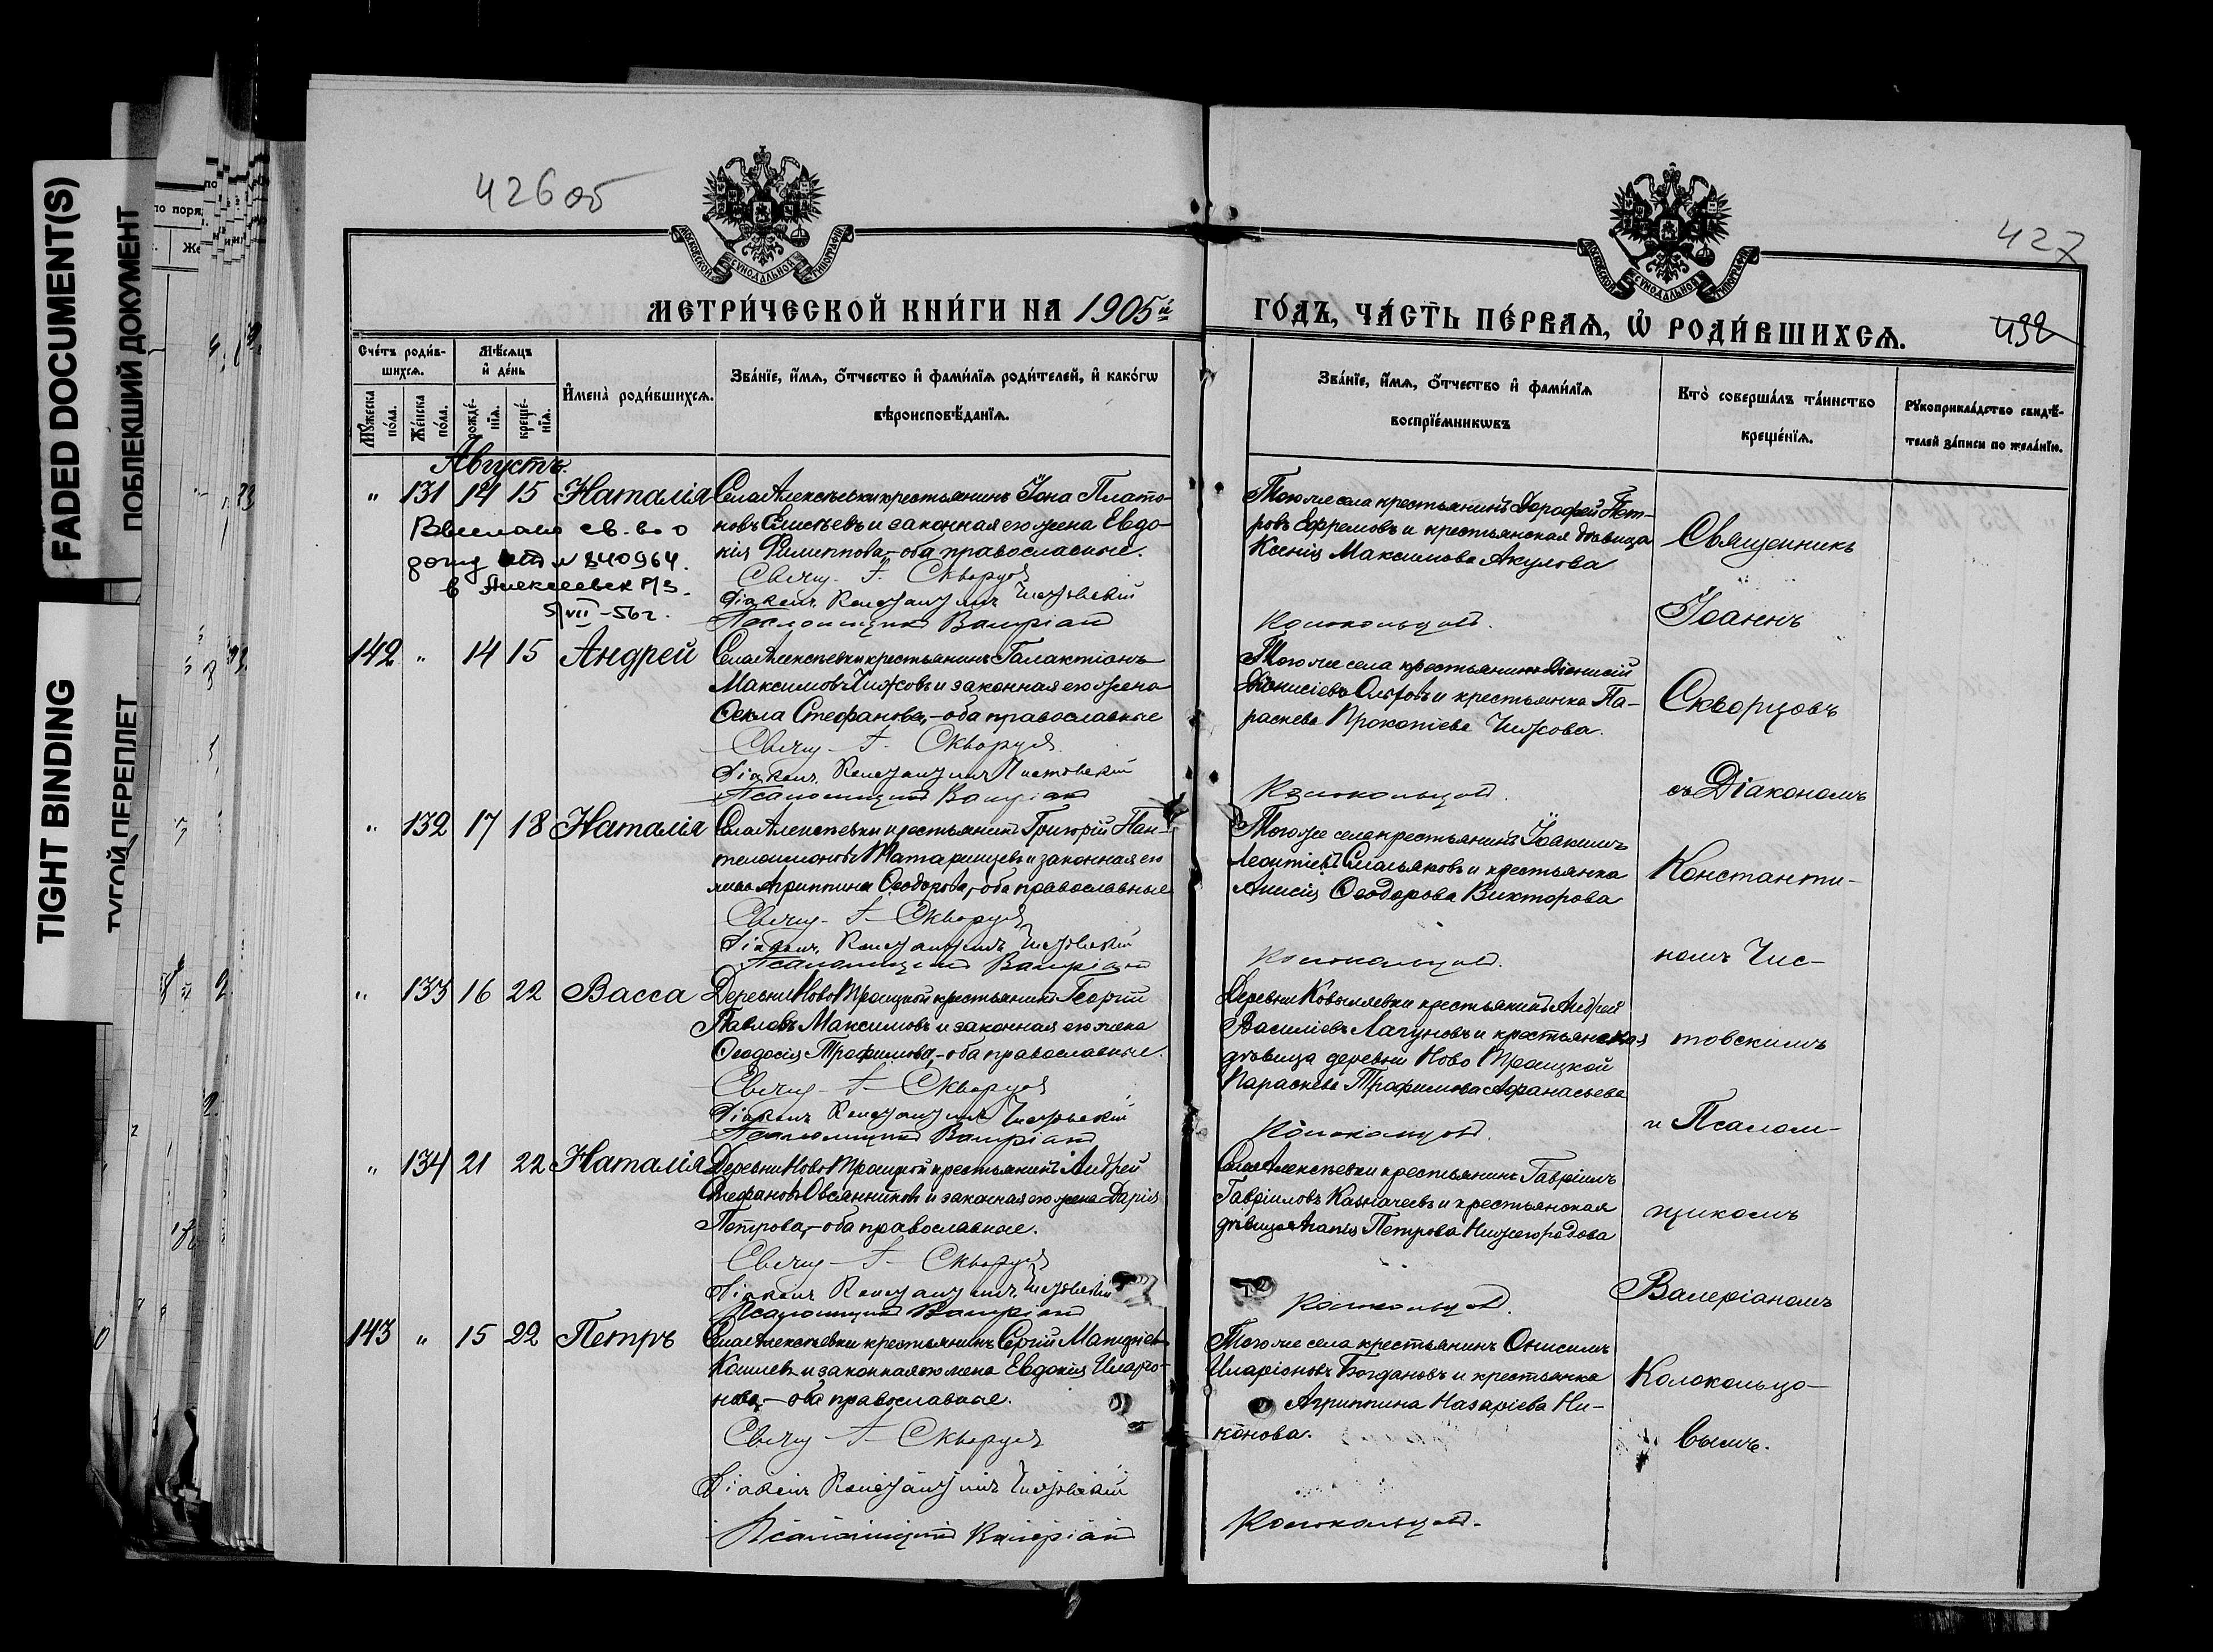 FADED DOCUMENT(S)
ПОБЛЕКШИЙ ДОКУМЕНТ
TIGHT BINDING
ТУГОЙ ПЕРЕПЛЕТ
426об
427
432
МОСКОВСКОЙ СѴНОДАЛЬНОЙ ТИПОГРАФІИ
МОСКОВСКОЙ СѴНОДАЛЬНОЙ ТИПОГРАФІИ
МЕТРИ́ЧЕСКОЙ КНИ́ГИ НА 1905й
ГО́ДЪ, ЧА́СТЬ ПЕ́РВАѦ, Ѡ҆ РОДИ́ВШИХСѦ.
Сче́тъ роди́в-
шихсѧ.
Мѣ́сѧцъ
и҆ де́нь
Мꙋ́жеска
по́ла.
Же́нска
по́ла.
рожде́-
нїѧ.
креще́-
нїѧ.
И҆мена̀ роди́вшихсѧ.
Зва́нїе, и҆́мѧ, ѻ҆́тчество и҆ фами́лїѧ роди́телей, и҆ како́гѡ
вѣроисповѣ́данїѧ.
Зва́нїе, и҆́мѧ, ѻ҆́тчество и҆ фами́лїѧ
воспрїе́мникѡвъ
Кто̀ соверша́лъ та́инство
креще́нїѧ.
Рꙋкоприкла́дство свидѣ́-
телей за́писи по жела́нїю.
Августъ.
" 131 14 15 Наталія
Села Алексѣевки крестьянинъ Іона Плато-
новъ Елисѣевъ и законная его жена Евдо-
кія Филиппова, – оба православные.
Свящ. І. Скворцовъ
Діаконъ Константинъ Чистовскій
Псаломщикъ Валеріанъ
Выслано св. во о
№ 340964.
в Алексеевск Р/З.
5/VII-56г.
Того же села крестьянинъ Дорофей Пет-
ровъ Ефремовъ и крестьянская дѣвица
Ксенія Максимова Акулова
Колокольцовъ.
142 " 14 15 Андрей
Села Алексѣевки крестьянинъ Галактіонъ
Максимовъ Чижовъ и законная его жена
Ѳекла Стефанова, – оба православные
Свящ. І. Скворцовъ
Діаконъ Константинъ Чистовскій
Псаломщикъ Валеріанъ
Того же села крестьянинъ Діонисій
Діонисіевъ и крестьянка Па-
раскева Прокопіева Чижова.
Колокольцовъ.
" 132 17 18 Наталія
Села Алексѣевки крестьянинъ Григорій Пан-
телеимоновъ Татаринцевъ и законная его
жена Агриппина Ѳеодорова, – оба православные
Свящ. І. Скворцовъ
Діаконъ Константинъ Чистовскій
Псаломщикъ Валеріанъ
Того же села крестьянинъ Іоакимъ
Леонтіевъ Смольяковъ и крестьянка
Анисія Ѳеодорова Викторова
Колокольцовъ.
" 133 16 22 Васса
Деревни Ново Троицкой крестьянинъ Георгій
Павловъ Максимовъ и законная его жена
Ѳеодосія Трофимова, – оба православные.
Свящ. І. Скворцовъ
Діаконъ Константинъ Чистовскій
Псаломщикъ Валеріанъ
Деревни Ковылевки крестьянинъ Андрей
Василіевъ Лагуновъ и крестьянская
дѣвица деревни Ново Троицкой
Параскева Трофимова Афанасьева
Колокольцовъ.
" 134 21 22 Наталія
Деревни Ново Троицкой крестьянинъ Андрей
Стефановъ Овсянниковъ и законная его жена Дарія
Петрова, – оба православные.
Свящ. І. Скворцовъ
Діаконъ Константинъ Чистовскій
Псаломщикъ Валеріанъ
Села Алексѣевки крестьянинъ Гавріилъ
Гавріиловъ Казначеевъ и крестьянская
дѣвица Агапія Петрова Нижегородова
Колокольцовъ.
143 " 15 22 Петръ
Села Алексѣевки крестьянинъ Сергій Матѳіевъ
Кошлевъ и законная его жена Евдокія Иларіо-
нова, – оба православные.
Свящ. І. Скворцовъ
Діаконъ Константинъ Чистовскій
Псаломщикъ Валеріанъ
Того же села крестьянинъ Онисимъ
Иларіоновъ Богдановъ и крестьянка
Агриппина Назаріева Ни-
конова.
Колокольцовъ.
Священникъ
Іоаннъ
Скворцовъ
съ Діакономъ
Константи-
номъ Чис-
товскимъ
и Псалом-
щикомъ
Валеріаномъ
Колокольцо-
вымъ.